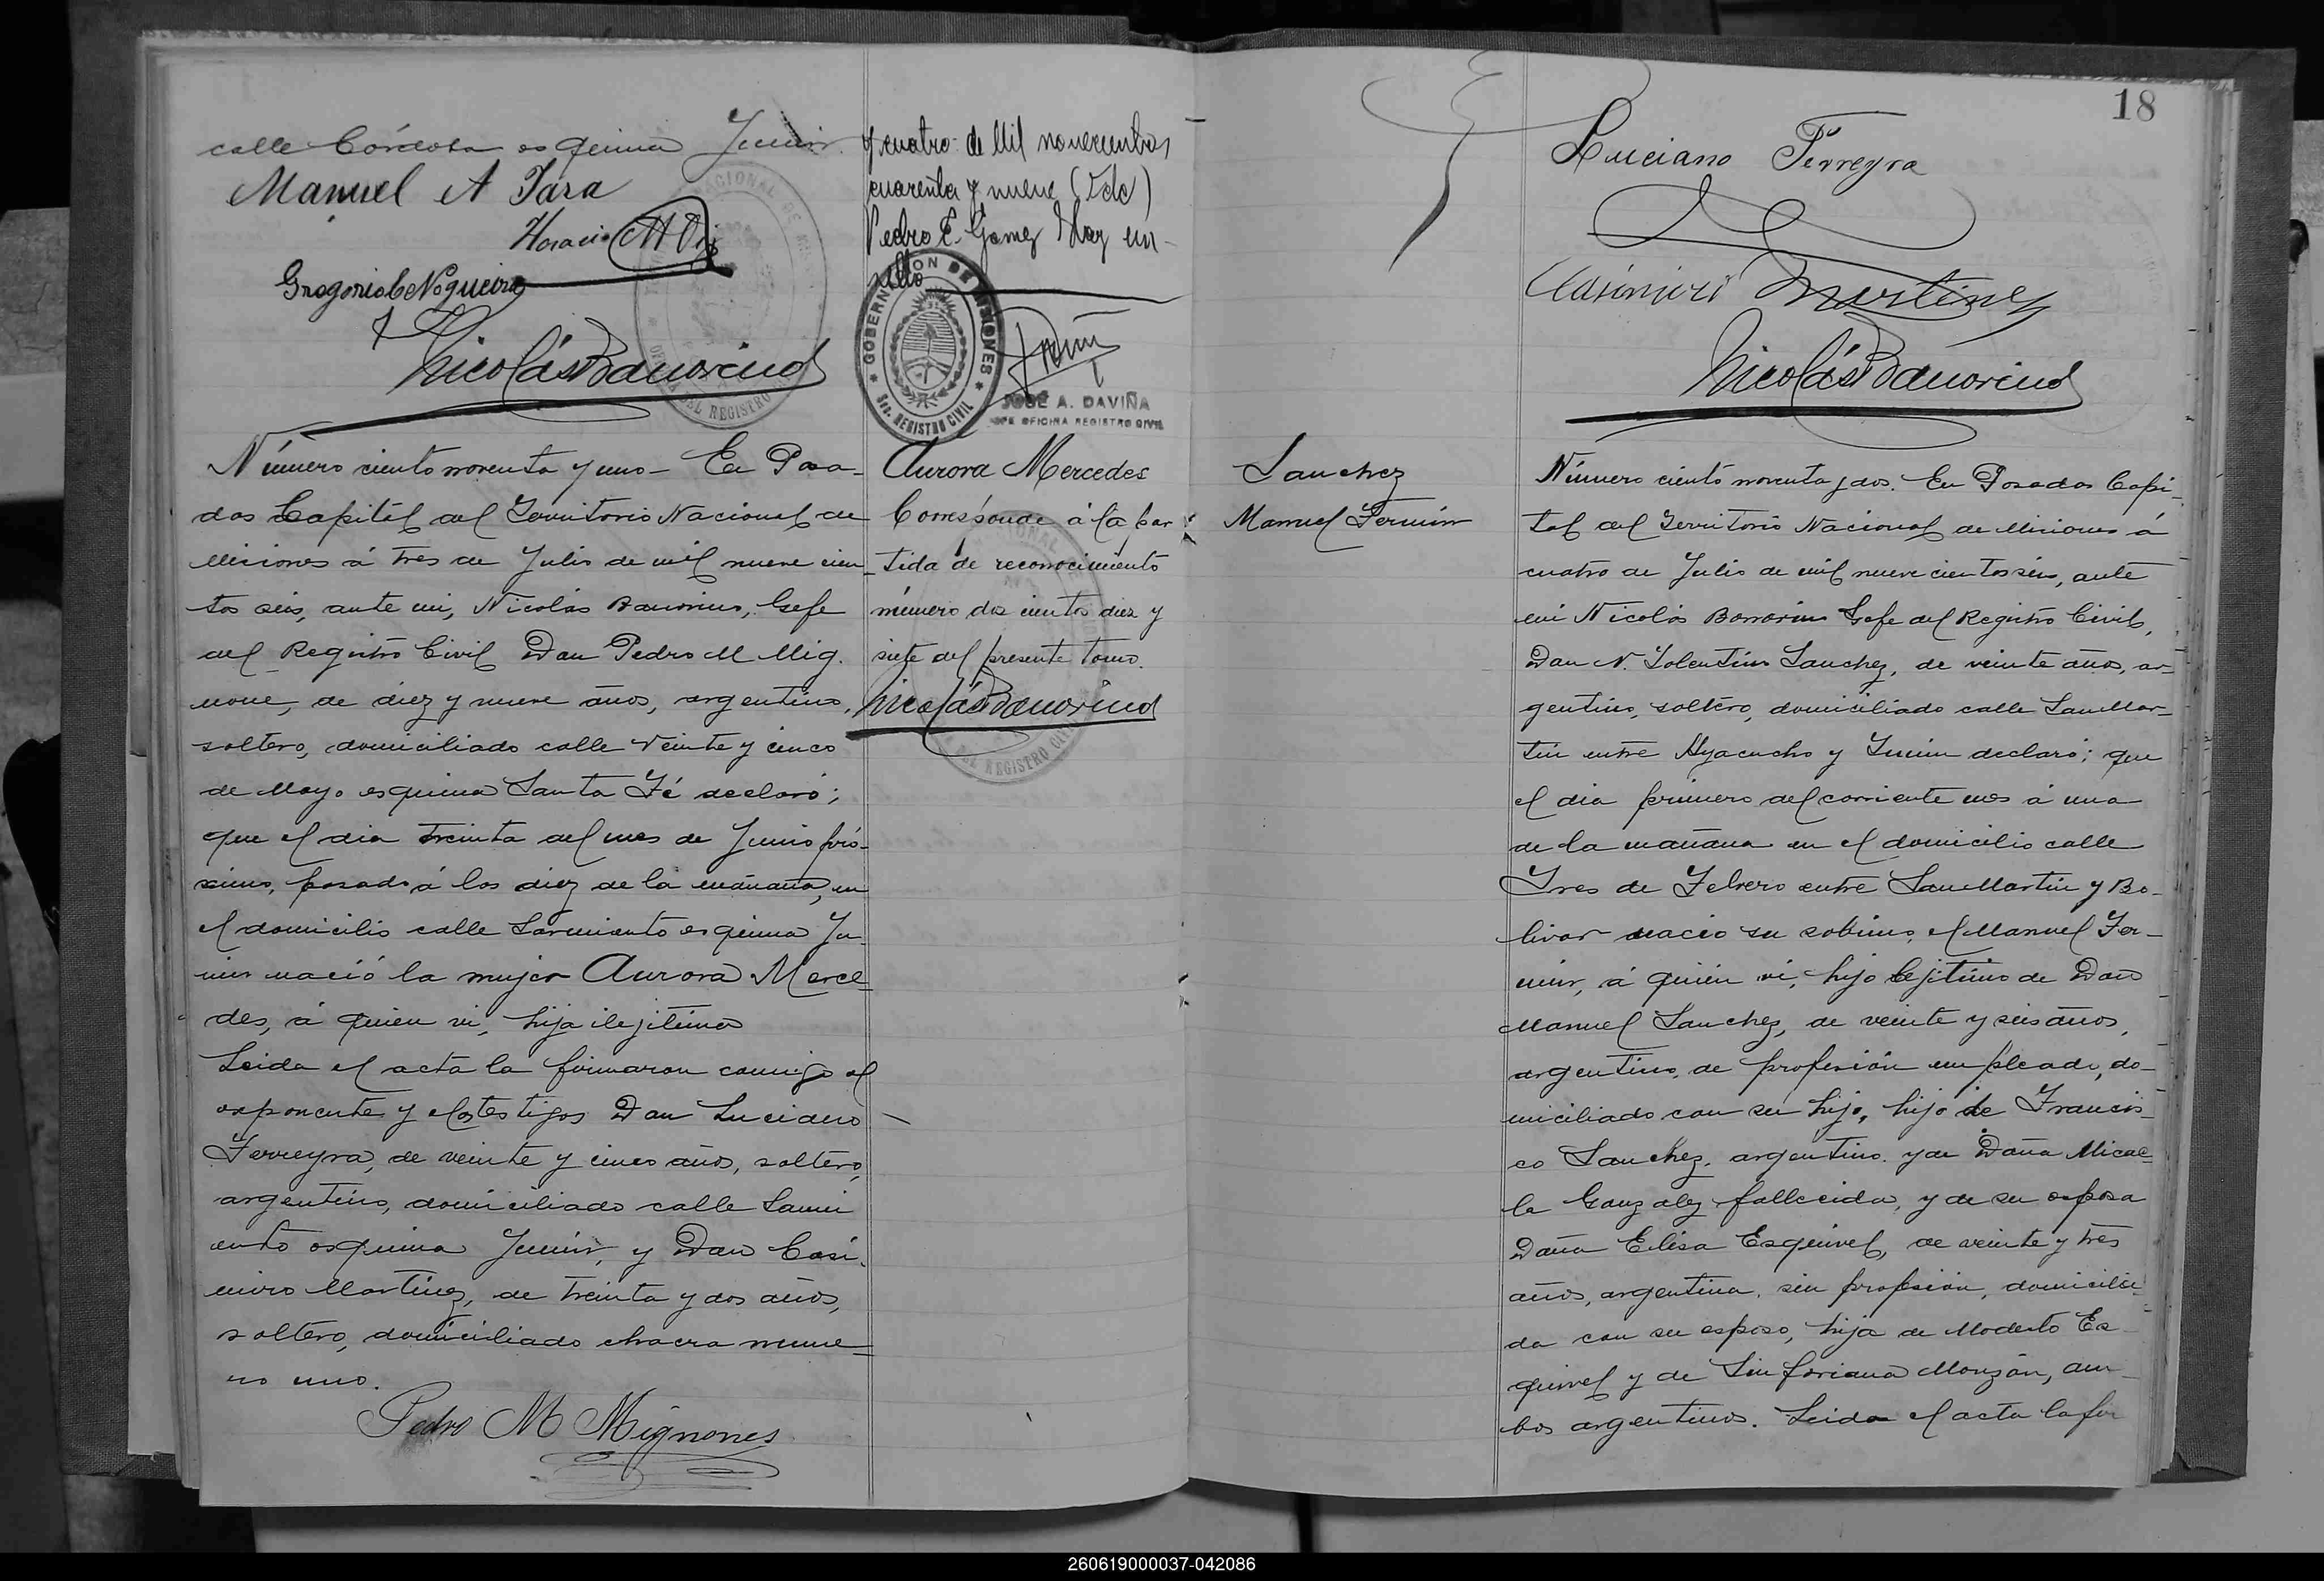 calle Córdoba esquina Junin.
Manuel A Jara
Horacio
Gregorio C Nogueira
Nicolás Bauorino
Número ciento noventa y uno - En Posa-
das Capital del Territorio Nacional de
Misiones á tres de Julio de mil nueve cien-
tos seis, ante mi, Nicolás Bauorino, Gefe
del Registro Civil Don Pedro M Mig-
none, de diez y nueve años, argentino,
soltero, domiciliado calle Veinte y cinco
de Mayo esquina Santa Fé declaró;
que el dia treinta del mes de Junio pró-
ximo, pasado á las diez de la mañana, en
el domicilio calle Sarmiento esquina Ju-
nin nació la mujer Aurora Merce-
des, á quien vi, hija ilejitima
Leida el acta la firmaron comigo el
exponente y los testigos Don Luciano
Ferreyra, de veinte y cinco años, soltero,
argentino, domiciliado calle Sarmi
ento esquina Junin, y Don Casi-
miro Martinez, de treinta y dos años,
soltero, domiciliado chacra nume-
ro uno.
Pedro M Mignones
y cuatro de Mil novecientos
cuarenta y nueve (Fdo)
Pedro E. Gomez Hay un
sello
GOBERNACION DE MISIONES
Sec. REGISTRO CIVIL
JOSE A. DAVIÑA
JEFE OFICINA REGISTRO CIVIL
Aurora Mercedes
Corresponde á la par-
tida de reconocimiento
número dos cientos diez y
siete del presente tomo.
Nicolás Bauorino
18
Luciano Ferreyra
Casimiro Martinez
Nicolás Bauorino
Sanchez
Manuel Fermin
Número ciento noventa y dos. En Posadas Capi-
tal del Territorio Nacional de Misiones á
cuatro de Julio de mil nueve cientos seis, ante
mi Nicolás Bauorino Gefe del Registro Civil,
Don N. Tolentino Sanchez, de veinte años, ar-
gentino, soltero, domiciliado calle San Mar-
tin entre Ayacucho y Junin declaró; que
el dia primero del corriente mes á una
de la mañana en el domicilio calle
Tres de Febrero entre San Martin y Bo-
livar nació su sobrino, el Manuel Fer-
min, á quién vi, hijo lejitimo de Don
Manuel Sanchez, de veinte y seis años,
argentino, de profesión empleado, do-
miciliado con su hijo, hijo de Francis-
co Sanchez, argentino, y de Doña Micae-
la Gonzalez fallecida, y de su esposa
Doña Elisa Esquivel, de veinte y tres
años, argentina, sin profesión, domicilia-
da con su esposo, hija de Modesto Es-
quivel y de Sinforiana Monzón, am-
bos argentinos. Leida el acta la fir
260619000037-042086